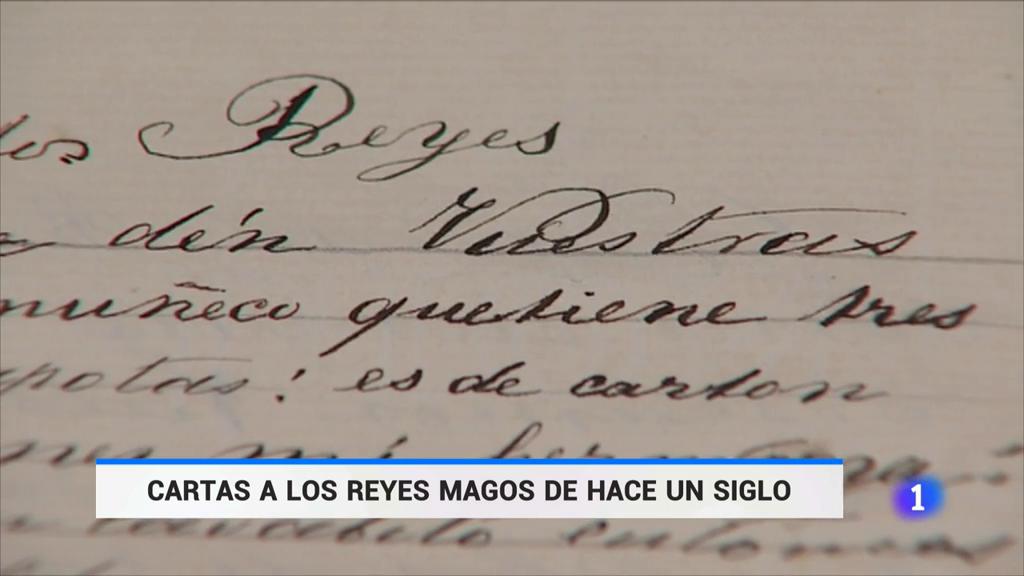 los Reyes
dén Vuestras
muñeco que tiene tres
es de carton
mi hermana
entonces
CARTAS A LOS REYES MAGOS DE HACE UN SIGLO
1